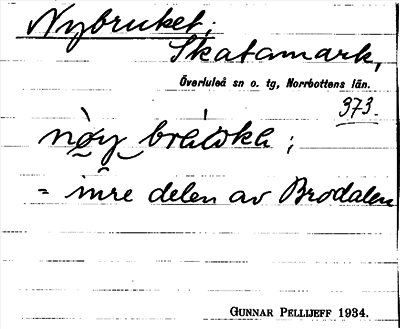 Nybruket;
Skatamark,
Överluleå sn o. tg, Norrbottens län.
373.
= inre delen av Brodalen
GUNNAR PELLIJEFF 1934.